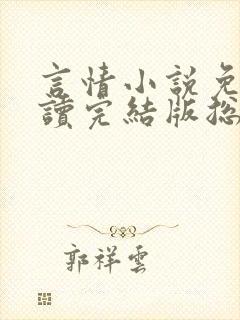 言情小說免
讀完結版總
郭祥雲